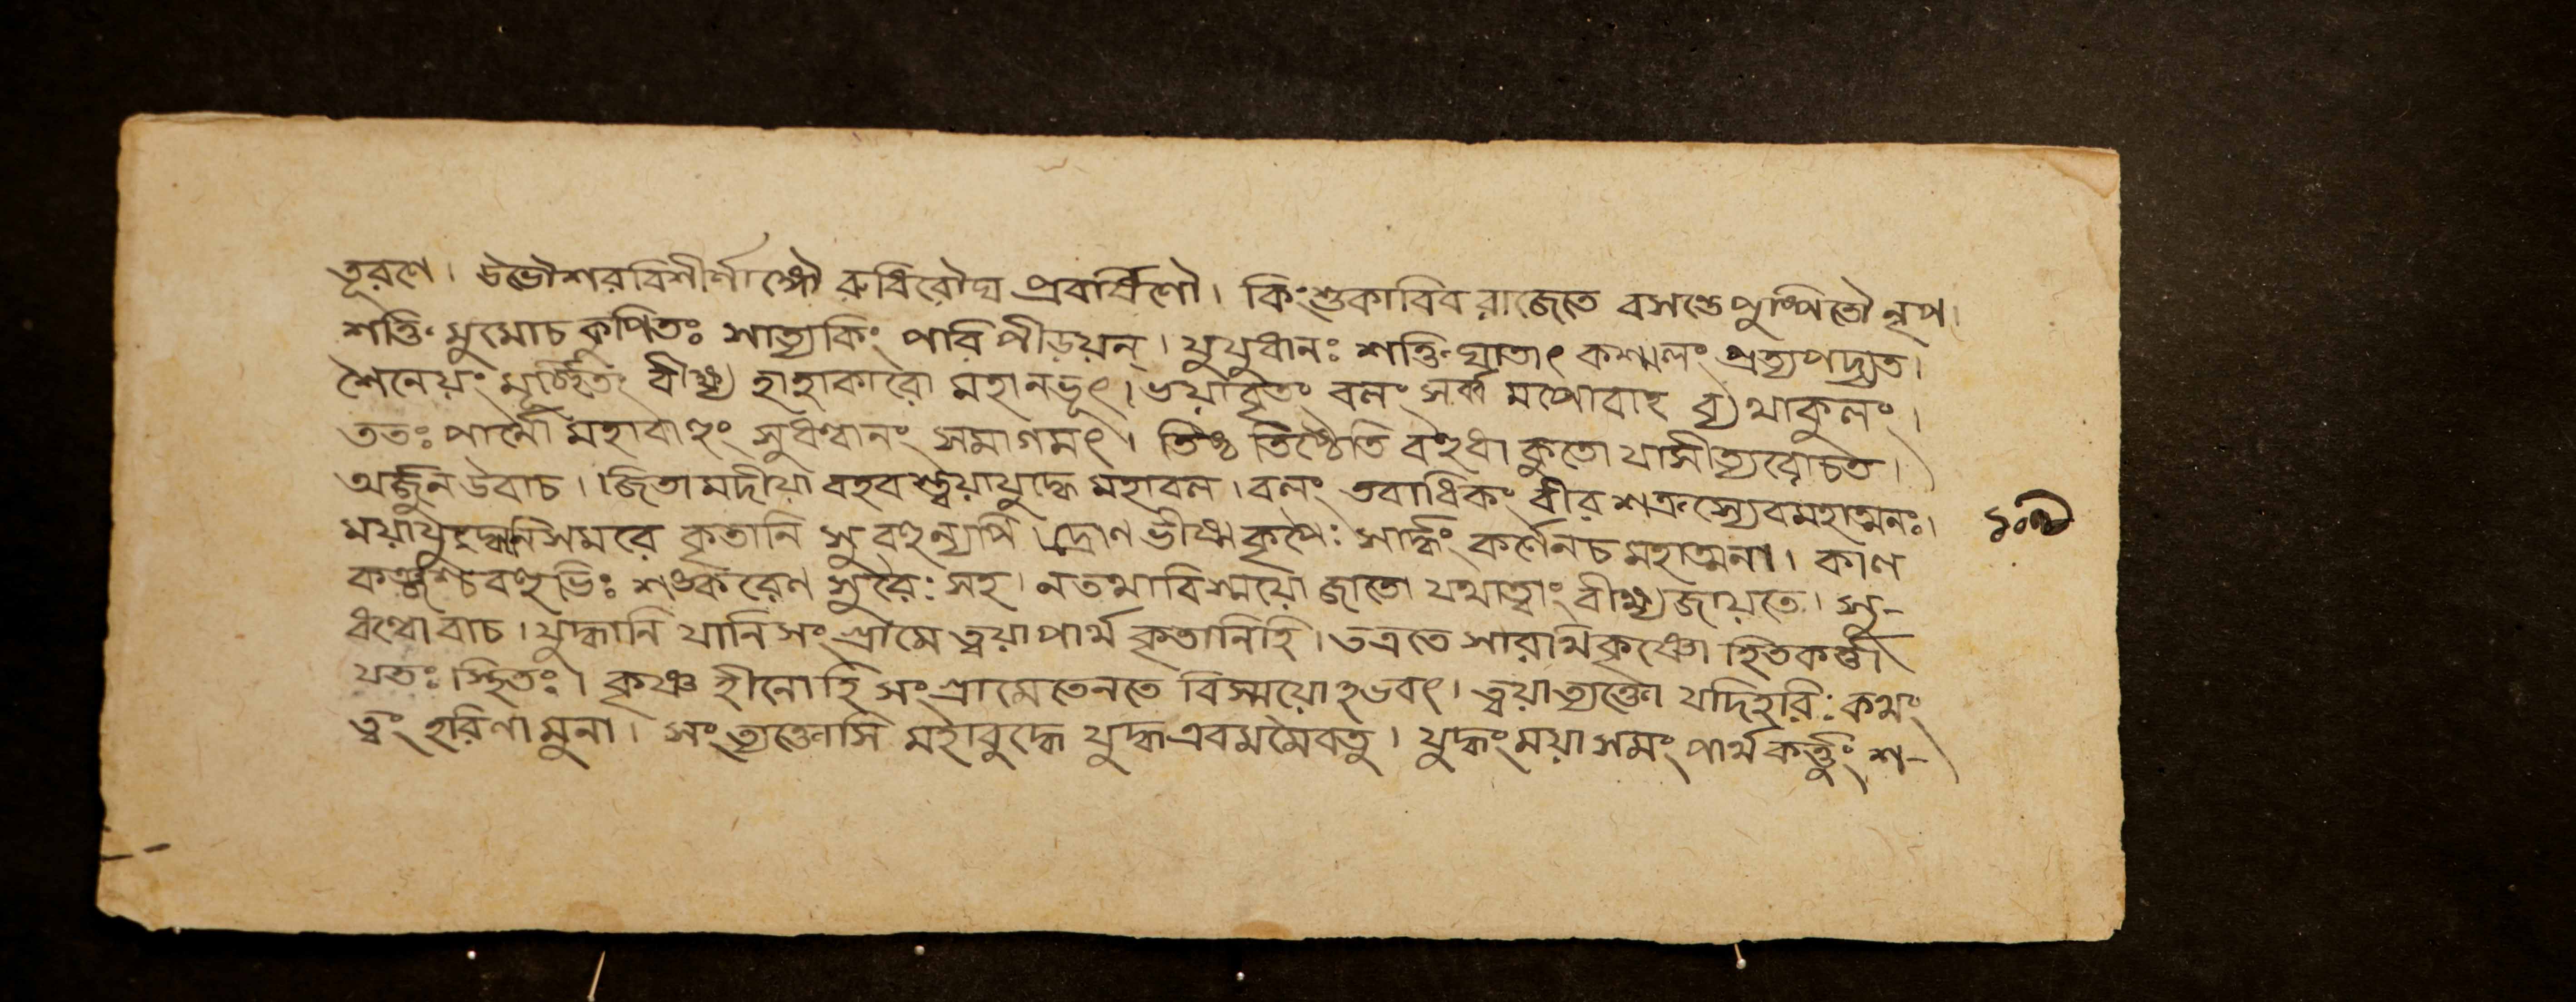 তূরণে। উভৌশরবিশীর্ণাঙ্গৌ রুধিরৌঘ প্রবর্ষিণৌ। কিংশুকাবিব রাজেতে বসন্তেপুষ্পিতৌ নৃপ।
শক্তিং মুমোচ কুপিতঃ সাত্যকিং পরিপীড়য়ন্। যুযুধানঃ শক্তিঘাতাৎ কশ্মলং প্রত্যপদ্যত।
শৈনেয়ং মূর্চ্ছিতং বীক্ষ্য হাহাকারো মহানভূৎ। ভয়াবৃতং বলং সর্ব্ব মথোবাহ ব্যথাকুলং।
ততঃ পার্থো মহাবাহুং সুধন্বানং সমাগমৎ। তিষ্ঠ তিষ্ঠেতি বহুধা কুতো যাসীত্যবোচত।
অর্জ্জুন উবাচ। জিতা মদীয়া বহব স্ত্বয়াযুদ্ধে মহাবল। বলং তবাধিকং বীর শক্রস্যেবমহাত্মনঃ।
ময়াযুদ্ধানিসমরে কৃতানি সুবহুন্যপি। দ্রোণ ভীষ্মকৃপৈঃ সার্দ্ধং কর্ণেনচ মহাত্মনা। কাল
কঞ্জৈশ্চ বহুভিঃ শঙ্করেণ সুরৈঃ সহ। নতথা বিস্ময়ো জাতো যথাত্বাং বীক্ষ্য জায়তে। সু-
ধন্বোবাচ। যুদ্ধানি যানিসংগ্রামে ত্বয়াপার্থ কৃতানিহি। তত্রতে সারথিকৃষ্ণো হিতকর্ত্তা
যতঃ স্থিতঃ। কৃষ্ণ হীনোহি সংগ্রামেতেনতে বিস্ময়োঽভবৎ। ত্বয়াত্যক্তো যদিহরিঃ কথং
ত্বং হরিণামুনা। সংত্যক্তোসি মহাবুদ্ধে যুদ্ধএবমমৈবতু। যুদ্ধংময়াসমং পার্থ কর্ত্তুং শ-